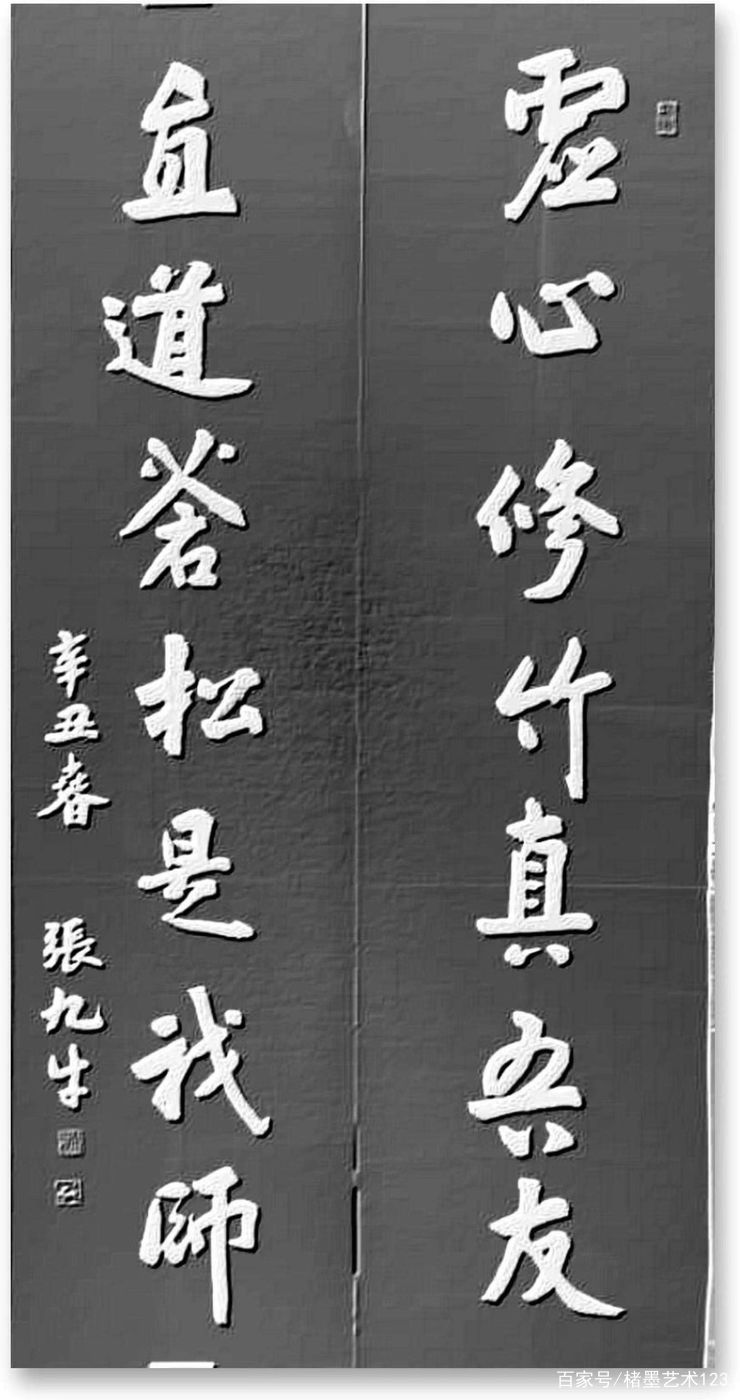 虛心修竹真吾友
直道蒼松是我師
辛丑春 張九生
百家号/楮墨艺术123